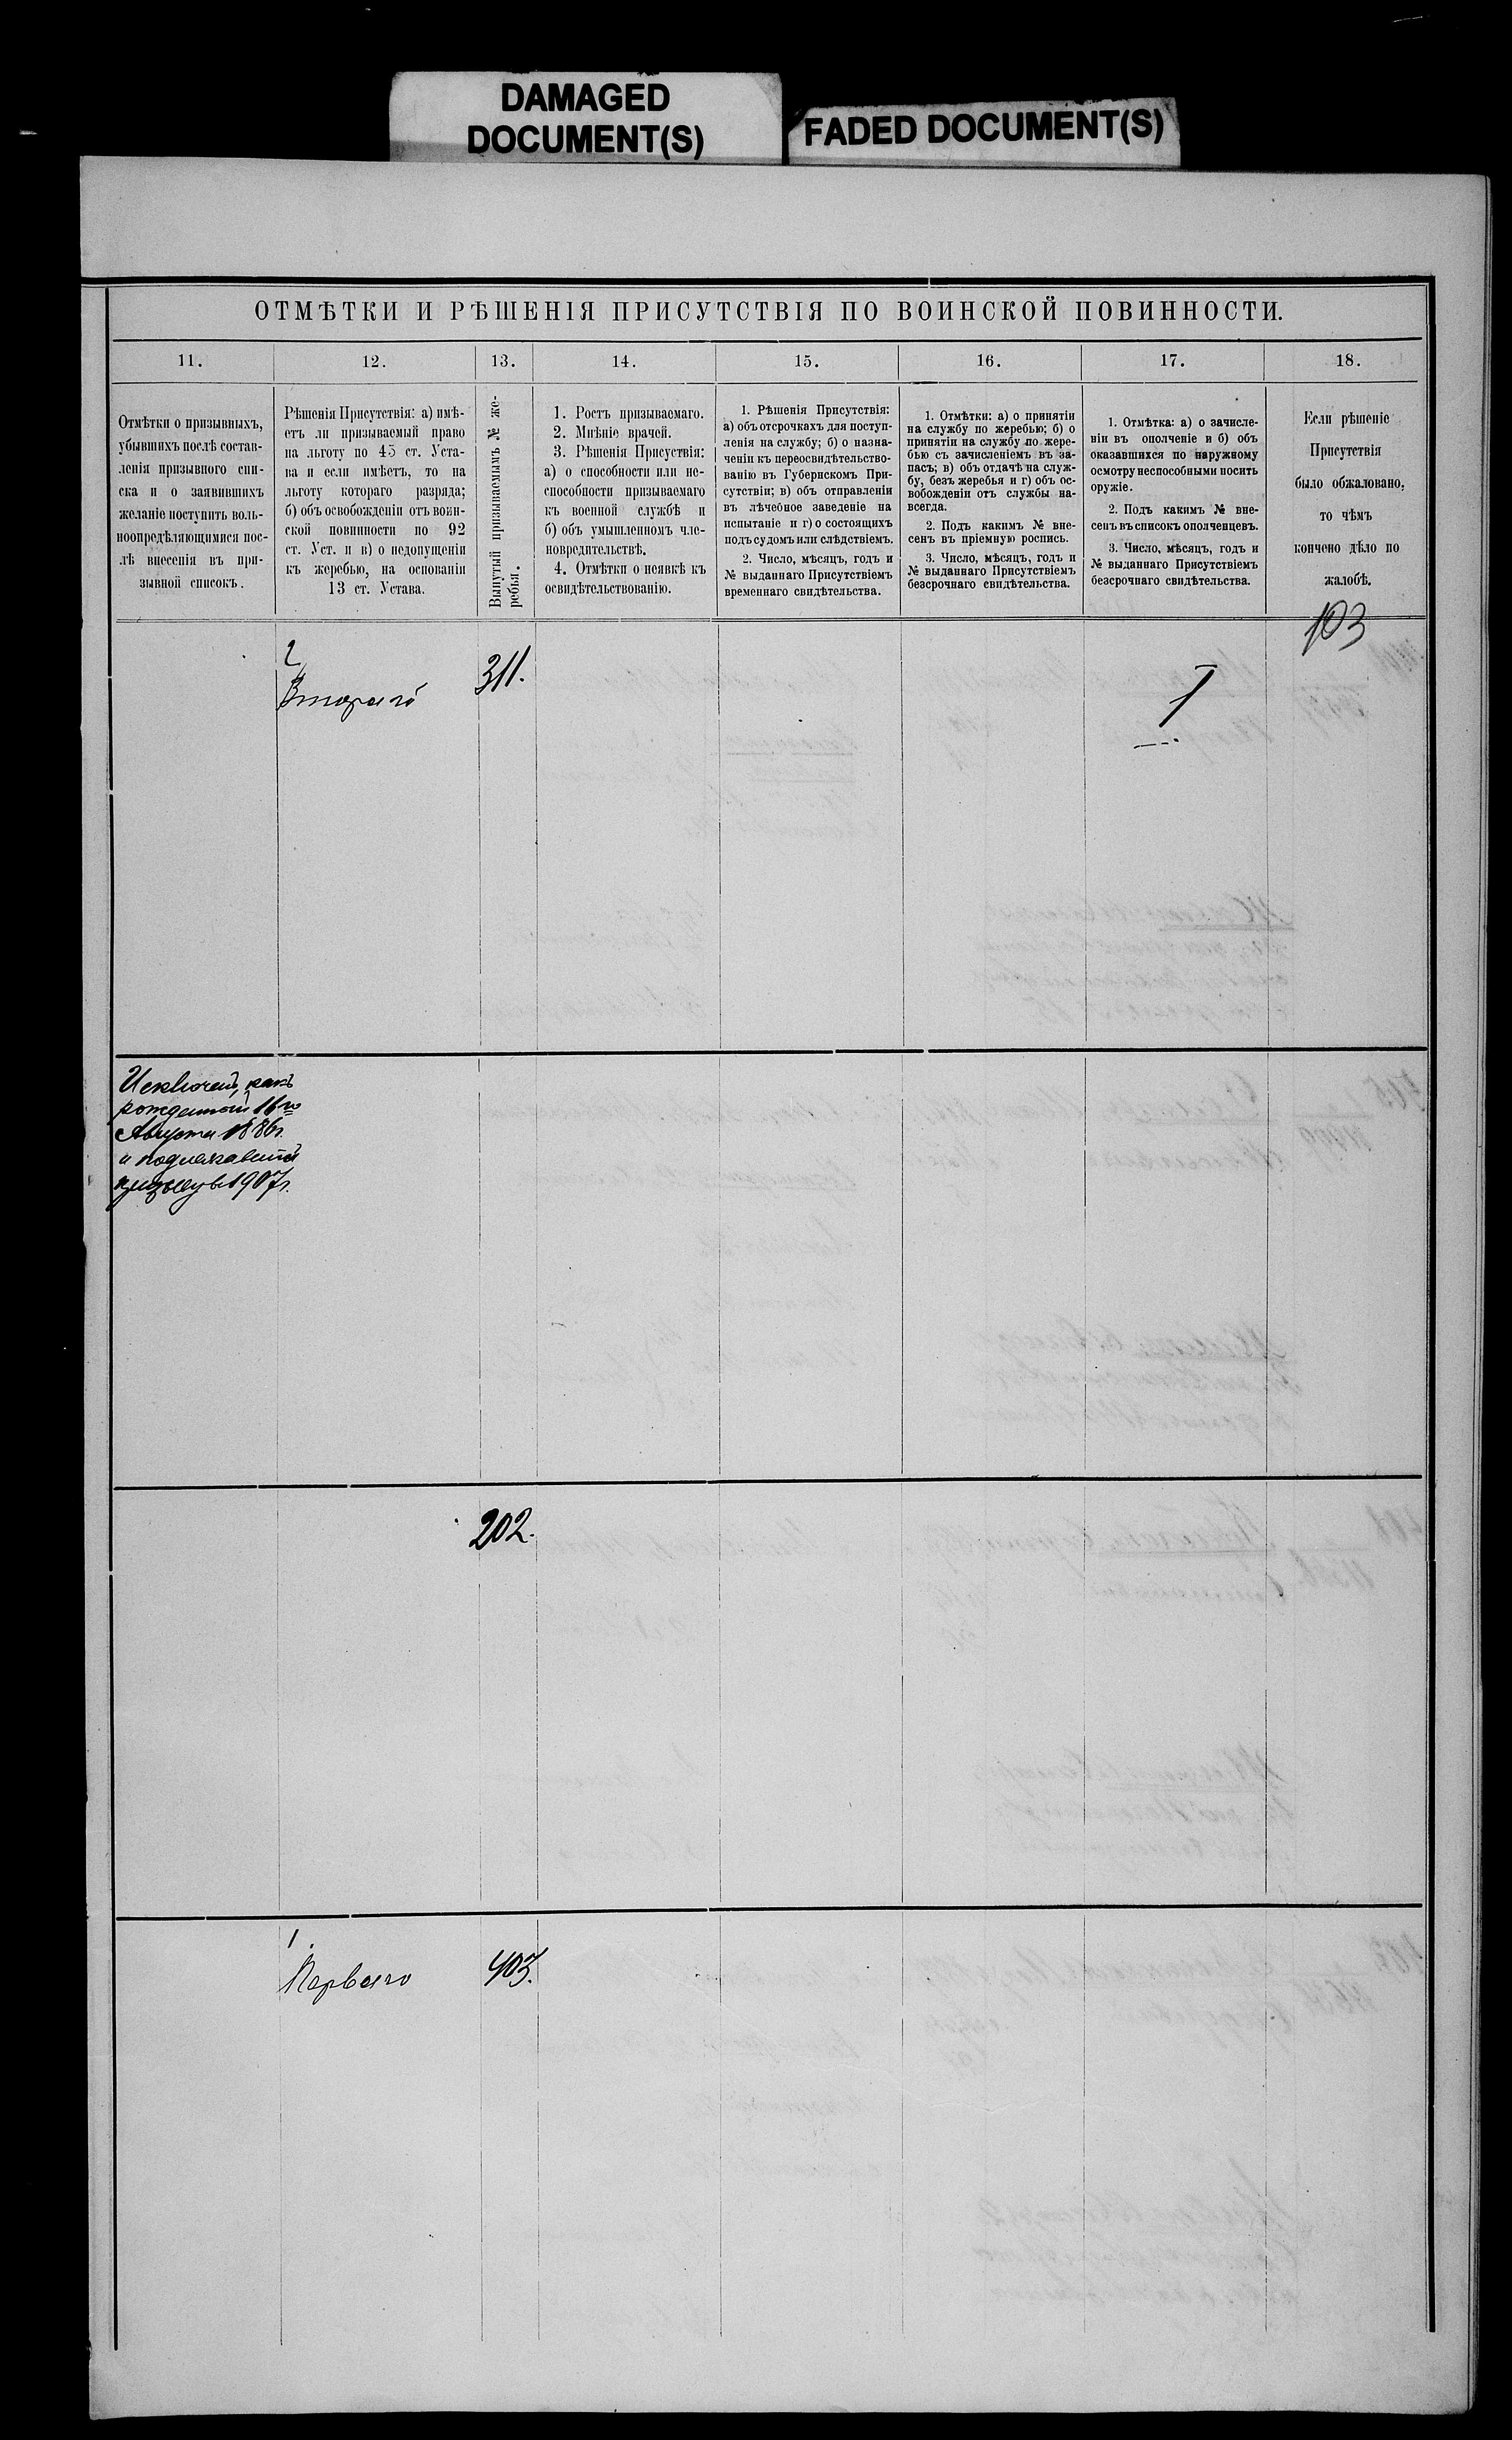 DAMAGED
DOCUMENT(S)
FADED DOCUMENT(S)
ОТМѢТКИ И РѢШЕНІЯ ПРИСУТСТВІЯ ПО ВОИНСКОЙ ПОВИННОСТИ.
11.
12.
13.
14.
15.
16.
17.
18.
Отмѣтки о призывныхъ,
убывшихъ послѣ состав-
ленія призывного спи-
ска и о заявившихъ
желаніе поступить воль-
ноопредѣляющимися пос-
лѣ внесенія въ при-
зывной списокъ.
Рѣшенія Присутствія: а) имѣ-
етъ ли призываемый право
на льготу по 45 ст. Уста-
ва и если имѣетъ, то на
льготу котораго разряда;
б) объ освобожденіи отъ воин-
ской повинности по 92
ст. Уст. и в) о недопущеніи
къ жеребью, на основаніи
13 ст. Устава.
Вынутый призываемымъ № же-
ребья.
1. Ростъ призываемаго.
2. Мнѣніе врачей.
3. Рѣшенія Присуствія:
а) о способности или не-
способности призываемаго
къ военной службѣ и
б) объ умышленномъ чле-
новредительствѣ.
4. Отмѣтки о неявкѣ къ
освидѣтельствованію.
1. Рѣшенія Присутствія:
а) объ отсрочкахъ для поступ-
ленія на службу; б) о назна-
ченіи къ переосвидѣтельство-
ванію въ Губернскомъ При-
сутствіи; в) объ отправленіи
въ лѣчебное заведеніе на
испытаніе и г) о состоящихъ
подъ судомъ или слѣдствіемъ.
2. Число, мѣсяцъ, годъ и
№ выданнаго Присутствіемъ
временнаго свидѣтельства.
1. Отмѣтки: а) о принятіи
на службу по жеребью; б) о
принятіи на службу по жере-
бью съ зачисленіемъ въ за-
пасъ; в) объ отдачѣ на служ-
бу, безъ жеребья и г) объ ос-
вобожденіи отъ службы на-
всегда.
2. Подъ какимъ № вне-
сенъ въ пріемную роспись.
3. Число, мѣсяцъ, годъ и
№ выданнаго Присутствіемъ
безсрочнаго свидѣтельства.
1. Отмѣтка: а) о зачисле-
ніи въ ополченіе и б) объ
оказавшихся по наружному
осмотру неспособными носить
оружіе.
2. Подъ какимъ № вне-
сенъ въ списокъ ополченцевъ.
3. Число, мѣсяцъ, годъ и
№ выданнаго Присутствіемъ
безсрочнаго свидѣтельства.
Если рѣшеніе
Присутствія
было обжаловано,
то чѣмъ
кончено дѣло по
жалобѣ.
103
2
Второго
311.
1
Исключенъ, какъ
рожденный 16 го
Августа 1886 г.
и подлежавшій
призыву въ 1907 г.
202.
1.
Перваго
403.